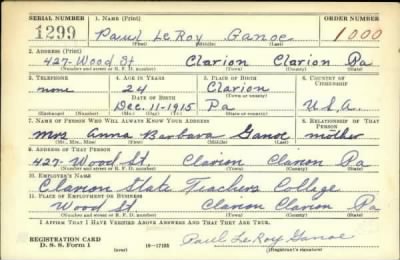 SERIAL NUMBER 1. NAME (Print) ORDER NUMBER
1299 Paul LeRoy Ganoe 1000
(First) (Middle) (Last)
2. ADDRESS (Print)
427-Wood St Clarion Clarion Pa
(Number and street or R. F. D. number) (Town) (County) (State)
3. TELEPHONE 4. AGE IN YEARS 5. PLACE OF BIRTH 6. COUNTRY OF CITIZENSHIP
none 24 Clarion
DATE OF BIRTH (Town or county)
Dec. 11-1915 Pa U.S.A.
(Exchange) (Number) (Mo.) (Day) (Yr.) (State or country)
7. NAME OF PERSON WHO WILL ALWAYS KNOW YOUR ADDRESS 8. RELATIONSHIP OF THAT PERSON
Mrs Anna Barbara Ganoe mother
(Mr., Mrs., Miss) (First) (Middle) (Last)
9. ADDRESS OF THAT PERSON
427-Wood St. Clarion Clarion Pa
(Number and street or R. F. D. number) (Town) (County) (State)
10. EMPLOYER'S NAME
Clarion State Teachers College
11. PLACE OF EMPLOYMENT OR BUSINESS
Wood St. Clarion Clarion Pa
(Number and street or R. F. D. number) (Town) (County) (State)
I AFFIRM THAT I HAVE VERIFIED ABOVE ANSWERS AND THAT THEY ARE TRUE.
REGISTRATION CARD
D. S. S. Form 1 (over) 16-17105 Paul LeRoy Ganoe
(Registrant's signature)